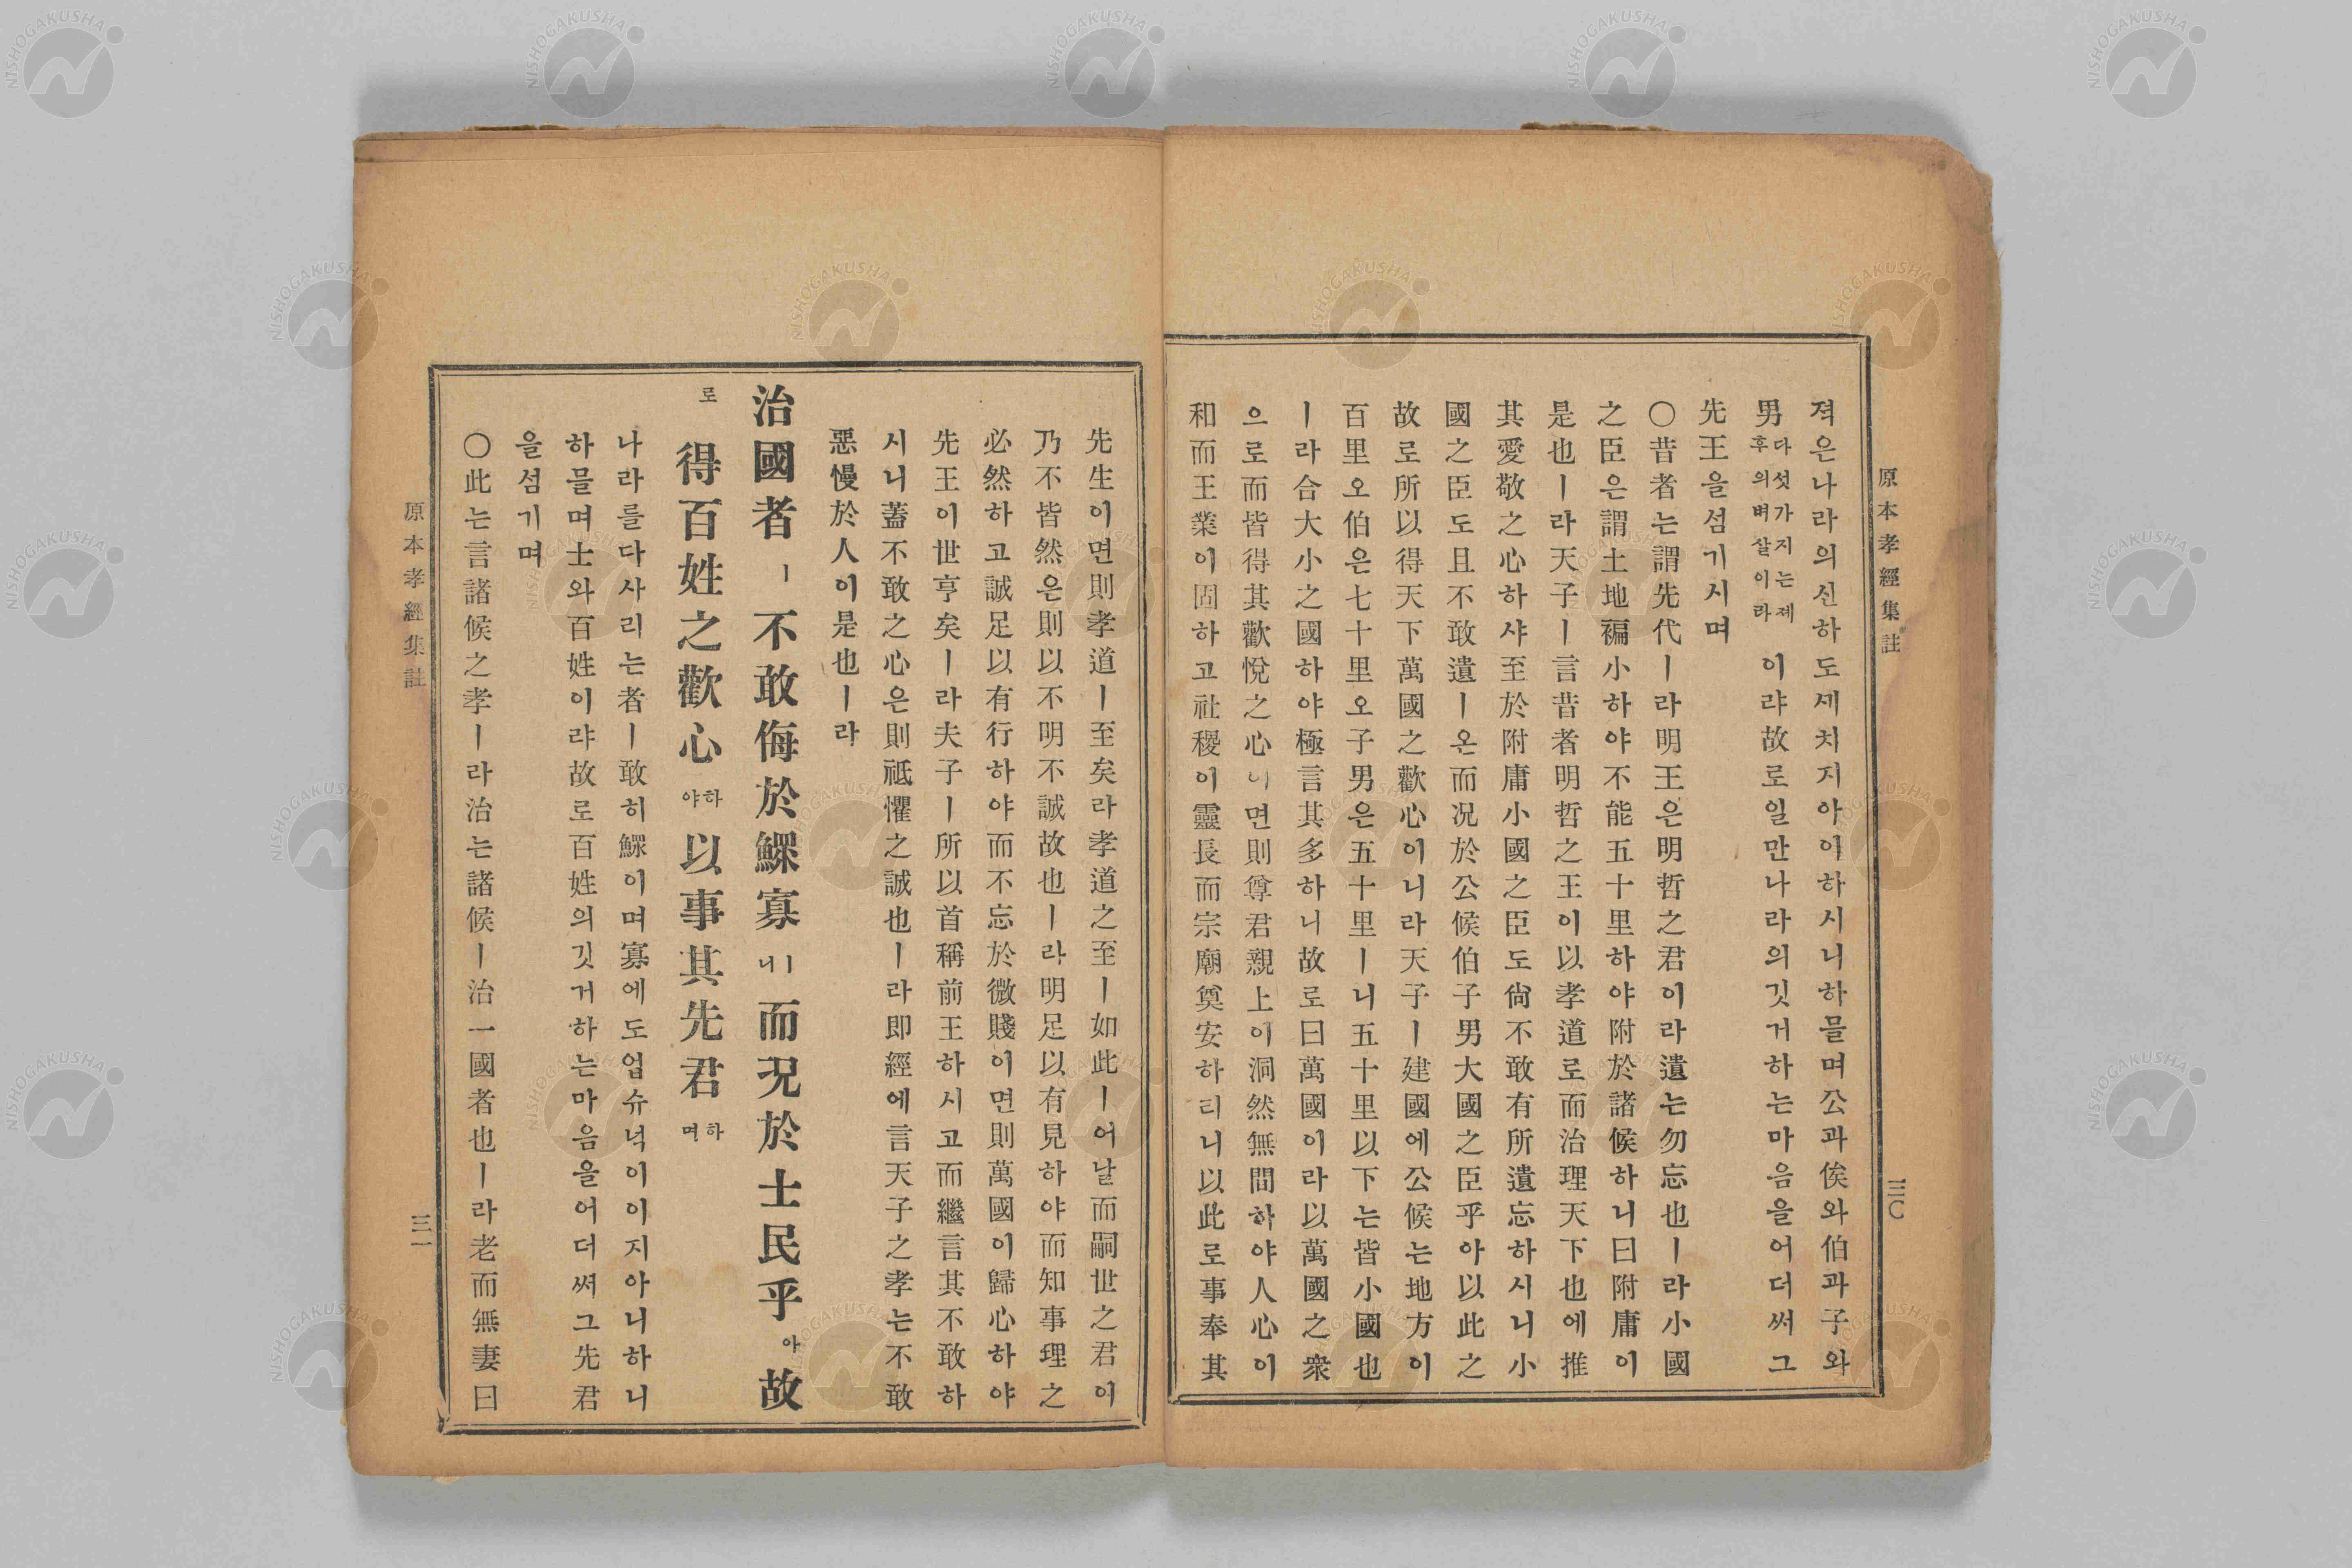 原本孝經集註 三〇
져은나라의신하도세치지아이하시니하믈며公과侯와伯과子와
男다섯가지는제후의벼살이라이랴故로일만나라의깃거하는마음을어더써그
先王을섬기시며
〇昔者는謂先代ㅣ라明王은明哲之君이라遺는勿忘也ㅣ라小國
之臣은謂土地褊小하야不能五十里하야附於諸候하니曰附庸이
是也ㅣ라天子ㅣ言昔者明哲之王이以孝道로而治理天下也에推
其愛敬之心하샤至於附庸小國之臣도尙不敢有所遺忘하시니小
國之臣도且不敢遺ㅣ온而况於公候伯子男大國之臣乎아以此之
故로所以得天下萬國之歡心이니라天子ㅣ建國에公候는地方이
百里오伯은七十里오子男은五十里ㅣ니五十里以下는皆小國也
ㅣ라合大小之國하야極言其多하니故로曰萬國이라以萬國之衆
으로而皆得其歡悅之心이면則尊君親上이洞然無間하야人心이
和而王業이固하고社稷이靈長而宗廟奠安하리니以此로事奉其
先生이면則孝道ㅣ至矣라孝道之至ㅣ如此ㅣ어날而嗣世之君이
乃不皆然은則以不明不誠故也ㅣ라明足以有見하야而知事理之
必然하고誠足以有行하야而不忘於微賤이면則萬國이歸心하야
先王이世亨矣ㅣ라夫子ㅣ所以首稱前王하시고而繼言其不敢하
시니蓋不敢之心은則祗懼之誠也ㅣ라即經에言天子之孝는不敢
惡慢於人이是也ㅣ라
治國者ㅣ不敢侮於鰥寡ㅣ니而况於士民乎아故
로得百姓之歡心하야以事其先君하며
나라를다사리는者ㅣ敢히鰥이며寡에도업슈녁이이지아니하니
하믈며士와百姓이랴故로百姓의깃거하는마음을어더써그先君
을섬기며
〇此는言諸候之孝ㅣ라治는諸候ㅣ治一國者也ㅣ라老而無妻曰
原本孝經集註 三一